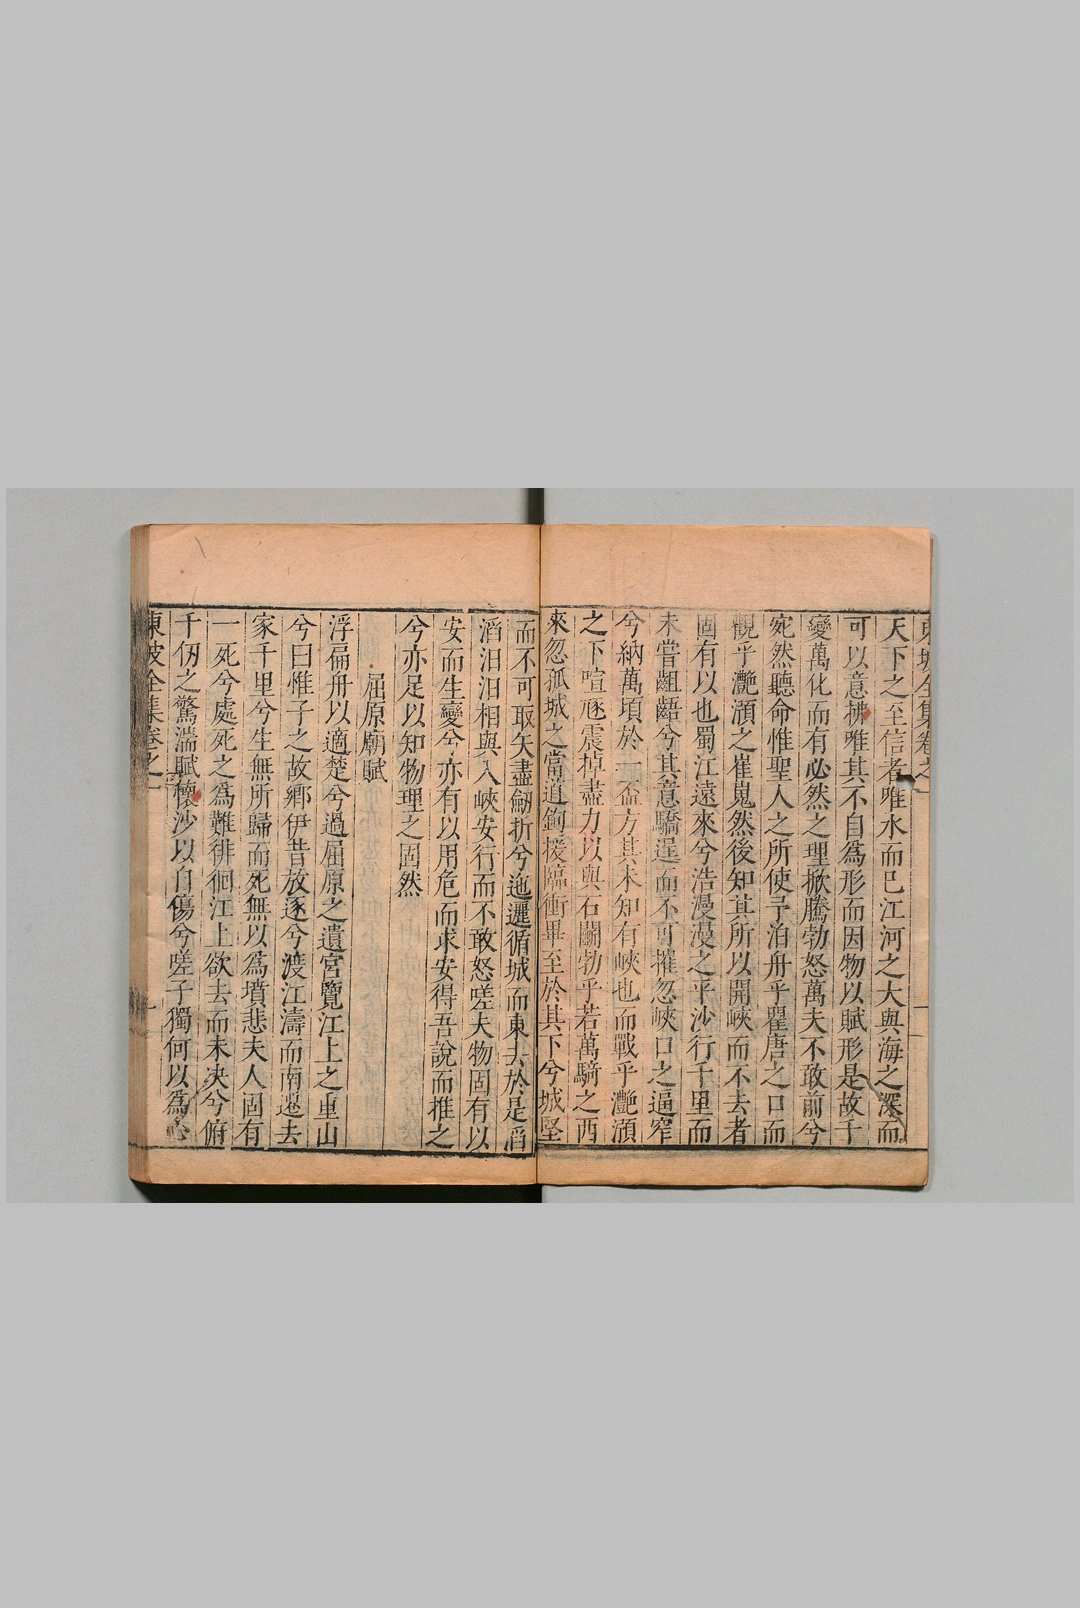 東坡全集卷之一
天下之至信者唯水而已江河之大與海之深而
可以意揣唯其不自為形而因物以賦形是故千
變萬化而有必然之理掀騰勃怒萬夫不敢前兮
宛然聽命惟聖人之所使予泊舟乎瞿唐之口而
觀乎灔澦之崔嵬然後知其所以開峽而不去者
固有以也蜀江遠來兮浩漫漫之平沙行千里而
未嘗齟齬兮其意驕逞而不可摧忽峽口之逼窄
兮納萬頃於一盃方其未知有峽也而戰乎灔澦
之下喧豗震掉盡力以與石鬭勃乎若萬騎之西
來忽孤城之當道鉤援臨衝畢至於其下兮城堅
而不可取矢盡劒折兮迤邐循城而東去於是滔
滔汩汩相與入峽安行而不敢怒嗟夫物固有以
安而生變兮亦有以用危而求安得吾說而推之
兮亦足以知物理之固然
屈原廟賦
浮扁舟以適楚兮過屈原之遺宮覽江上之重山
兮曰惟子之故鄉伊昔放逐兮渡江濤而南遷去
家千里兮生無所歸而死無以為墳悲夫人固有
一死兮處死之為難徘徊江上欲去而未决兮俯
千仞之驚湍賦懷沙以自傷兮嗟子獨何以為心
東坡全集卷之一